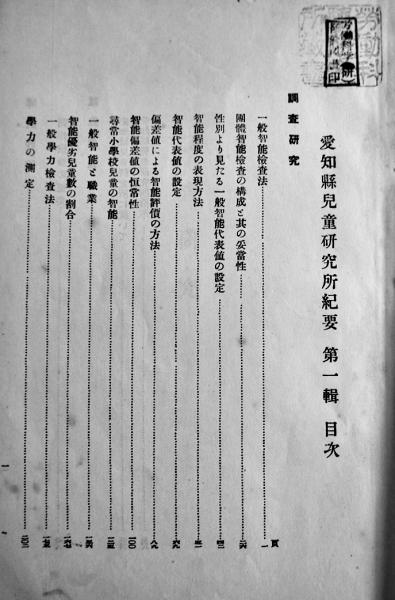 愛知縣兒童研究所紀要 第一輯 目次
調査研究
頁
一般智能檢査法 一
團體智能檢査の構成と其の妥當性
性別より見たる一般智能代表値の設定
智能程度の表現方法
智能代表値の設定
偏差値による智能評價の方法
智能偏差値の恒常性 一〇〇
尋常小學校兒童の智能
一般智能と職業
智能優劣兒童數の割合
一般學力檢査法
學力の測定
一